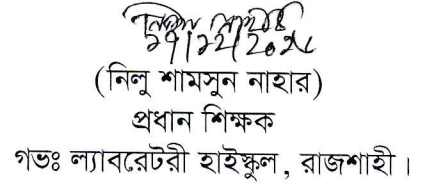 (নিলু শামসুন নাহার)
প্রধান শিক্ষক
গভঃ ল্যাবরেটরী হাইস্কুল , রাজশাহী ।